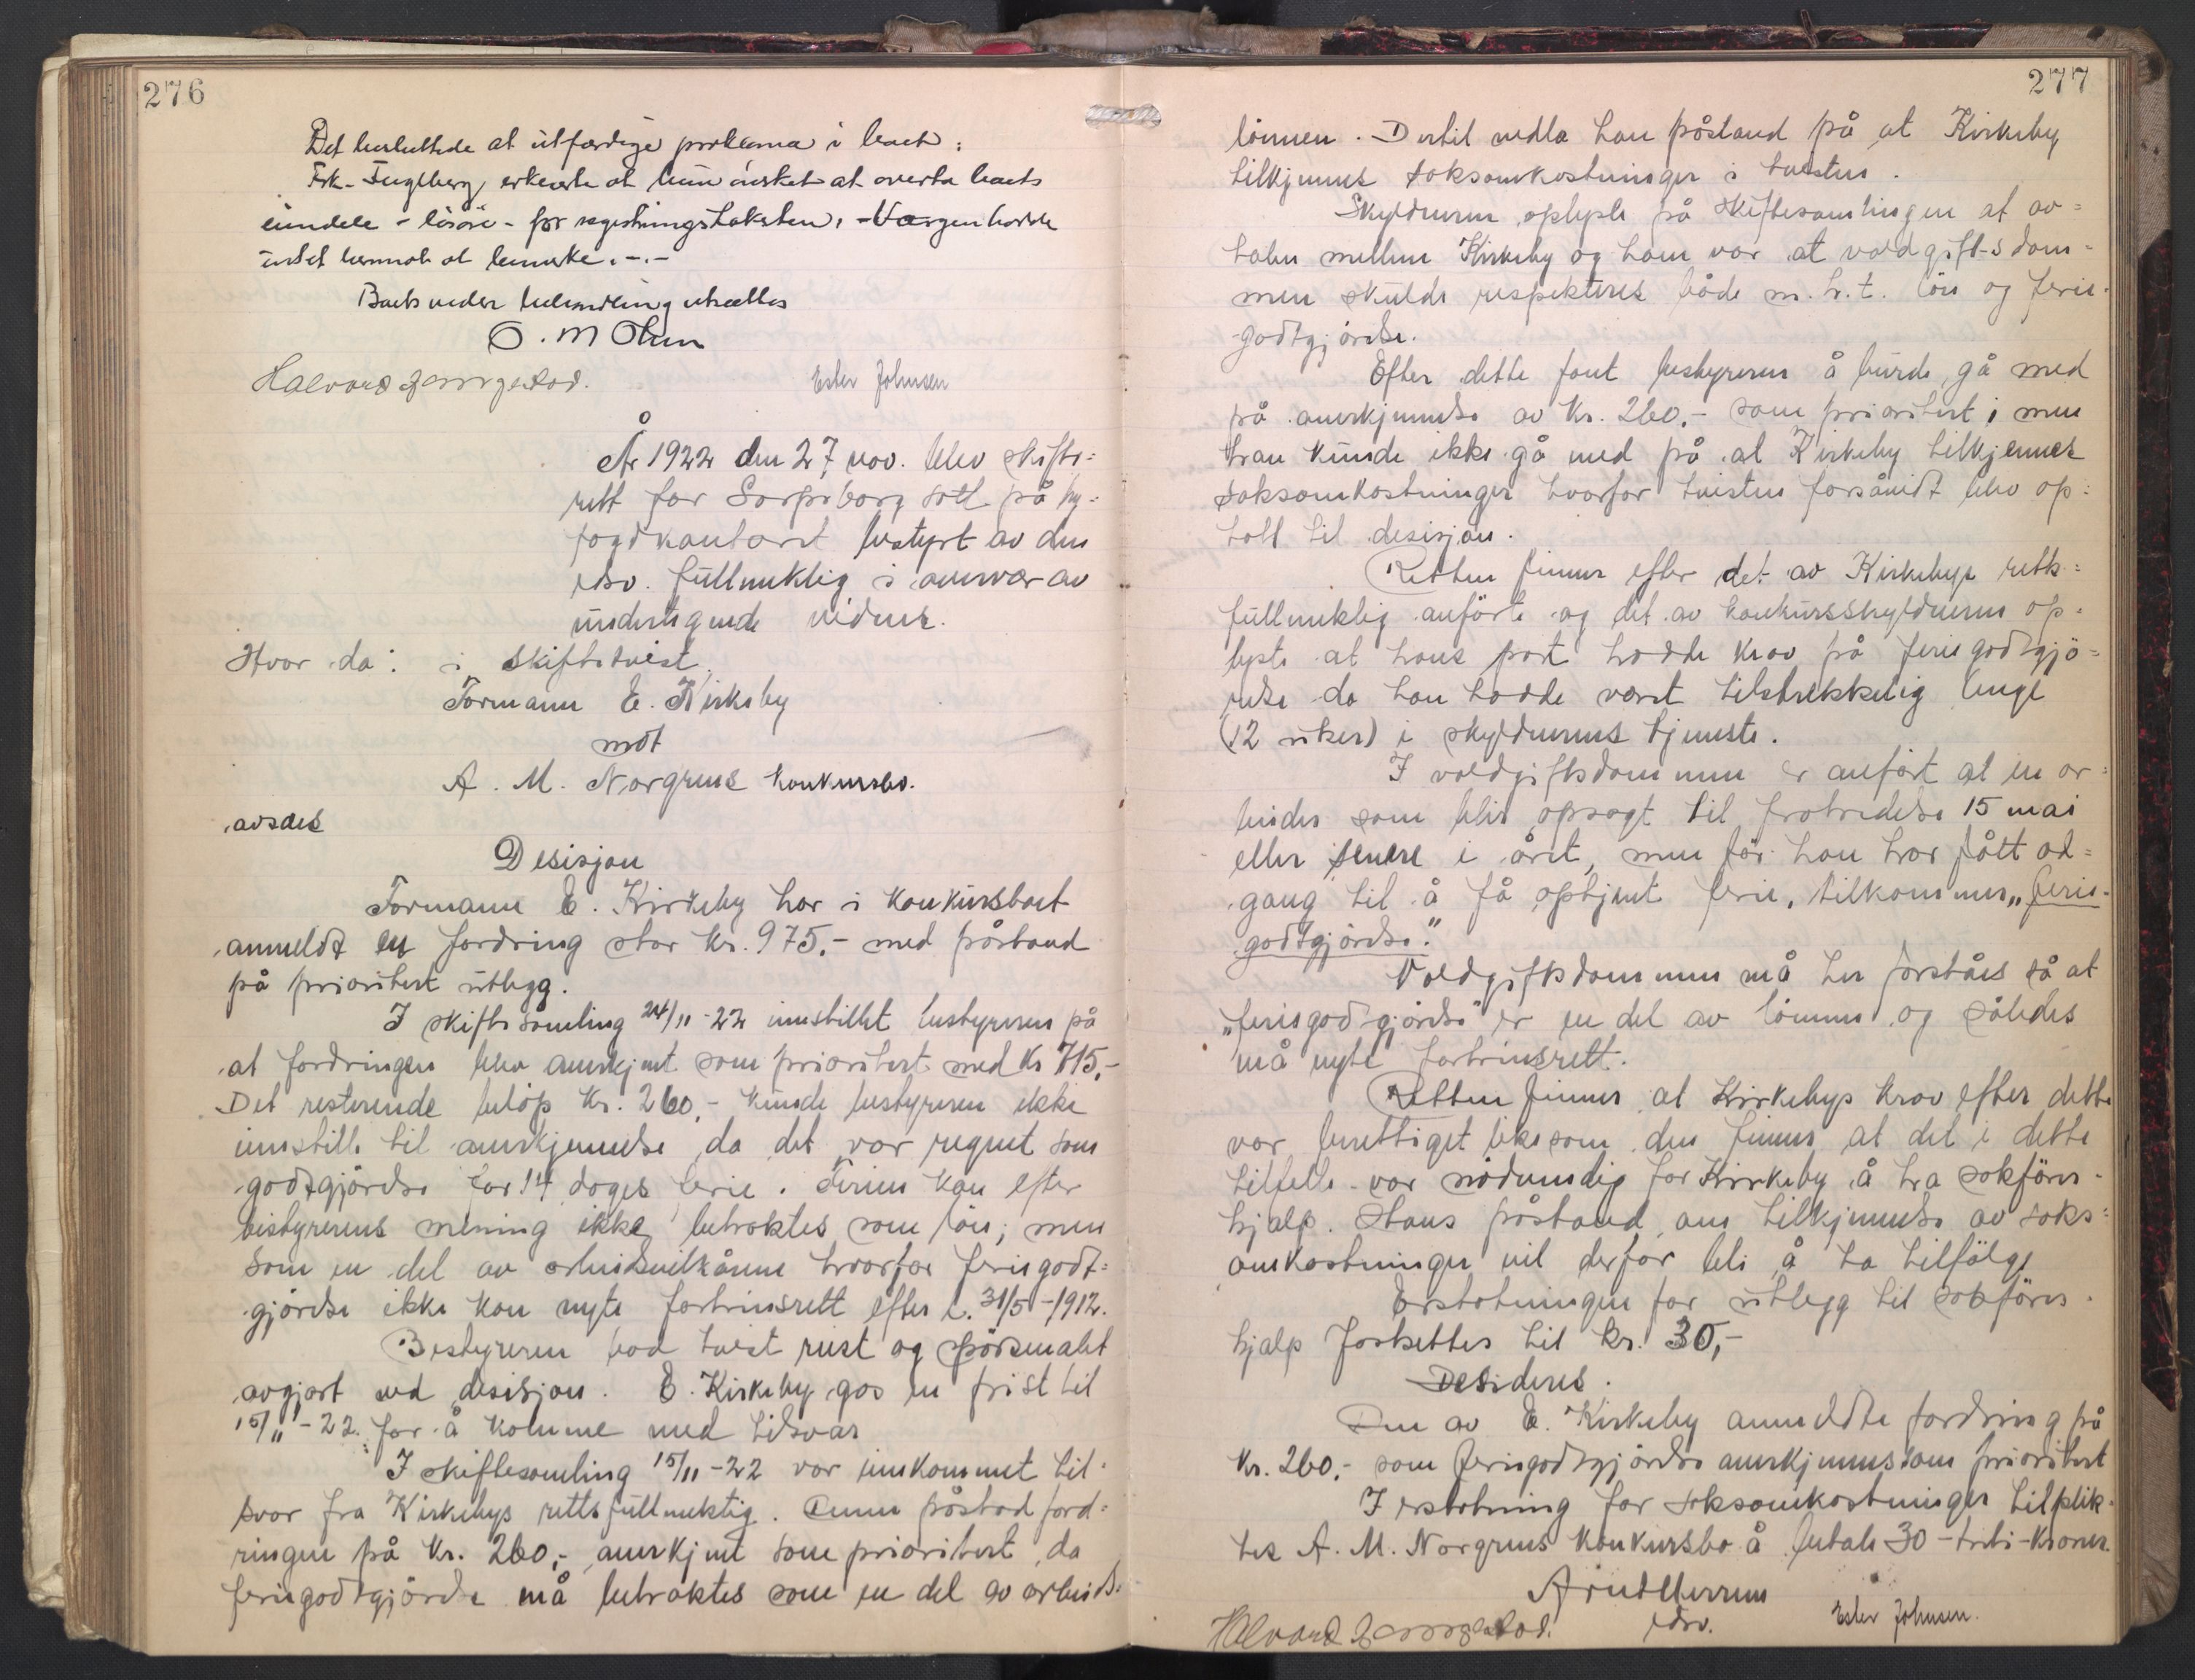 276
Det besluttede at utfærdige proklama i boet:
Frk. Fuglberg, erklærte at hun önsket at overta boets
eiendele - lösöre - for registreringstaksten. - Værgen hadde
intet hermot at bemerke. -.-
Boets videre behandling utsættes
O. M Olsen
Halvard Ester Johnsen
År 1922 den 27 nov. blev skifte-
rett for Sarpsborg satt på by-
fogdkontoret bestyrt av den
edsv. fullmektig i overvær av
undertegnede vidner.
Hvor da: i skiftetvist
Formann E. Kirkeby
mot
A. M. Norgrens konkursbo.
avsaes
Desisjon
Formann E. Kirkeby har i konkursboet
anmeldt en fordring stor kr. 975.- med påstand
på prioritert utlegg.
I skiftesamling 24/11-22 innstillet bestyreren på
at fordringen blev anerkjent som prioritert med kr 715,-
Det resterende belöp kr. 260,- kunde bestyreren ikke
innstille til anerkjennelse da det var regnet som
godtgjörelse for 14 dages ferie. Ferien kan efter
bestyrerens mening ikke betraktes som lön, men
som en del av arbeidsvilkårene hvorfor feriegodt-
gjörelse ikke kan nyte fortrinsrett efter l. 31/5-1912.
Bestyreren bad tvist reist og spörsmalet
avgjort ved desisjon. E. Kirkeby gas en frist til
15/11-22. for å komme med tilsvar
I skiftesamling 15/11-22 var innkommet til-
svar fra Kirkebys rettsfullmektig. Denne påstod ford-
ringen på kr. 260,- anerkjent som prioritert, da
feriegodtgjörelse må betraktes som en del av arbeids-
277
lönnen. Dertil nedla han påstand på at Kirkeby
tilkjennes saksomkostninger i tvisten.
Skyldneren oplyste på skiftesamlingen at av-
talen mellem Kirkeby og ham var at voldgifts dom-
men skulde respekteres både m. h. t. lön og ferie-
godtgjörelse.
Efter dette fant bestyreren å burde gå med
på anerkjennelse av kr. 260,- som prioritert, men
han kunde ikke gå med på at Kirkeby tilkjennes
saksomkostninger hvorfor tvisten forsåvidt blev op-
tatt til desisjon.
Retten finner efter det av Kirkebys retts-
fullmektig anförte og det av konkursskyldneren op-
lyste at hans part hadde krav på feriegodtgjö-
relse da han hadde vært tilstrekkelig lenge
(12 uker) i skyldnerens tjeneste.
I voldgiftsdommen er anfört at en ar-
beider som blir opsagt til fratredelse 15 mai
eller senere i året, men för han har fått ad-
gang til å få optjent ferie, tilkommer „ferie-
godtgjörelse."
Voldgiftsdommen må her forståes så at
„feriegodtgjörelse" er en del av lönnen og således
må nyte fortrinsrett.
Retten finner at Kirkebys krav efter dette
var berettiget likesom den finner at det i dette
tilfelle var nödvendig for Kirkeby å ha sakförer-
hjelp. Hans påstand om tilkjennelse av saks-
omkostninger vil derfor bli å ta tilfölge
Erstatningen for utlegg til sakförer-
hjelp fastsettes til kr. 30,-
Desideres.
Den av E. Kirkeby anmeldte fordring på
kr. 260,- som feriegodtgjörelse anerkjennes som prioritert
I erstatning for saksomkostninger tilplik-
tes A. M. Norgrens konkursbo å betale 30 - tretti - kroner.
edsv.
Halvard Ester Johnsen.